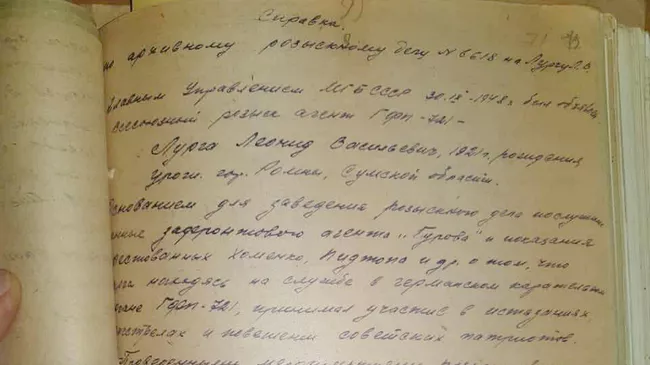 Справка.
по архивному розыскному делу № 6618 на Лургу Л.В.
Главным Управлением МГБ СССР 30.IX-1948 г. был объявлен
всесоюзный розыск агент ГФП-721-
Лурга Леонид Васильевич, 1921 г. рождения
урож. гор. Ромны, Сумской области.
Основанием для заведения розыскного дела послужили
данные зафронтового агента „Гурова" и показания
арестованных Хоменко, и др. о том, что
находясь на службе в германском карательном
органе ГФП-721, принимал участие в истязаниях,
расстрелах и повешении советских патриотов.